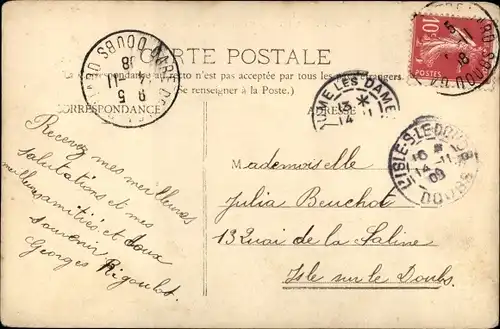 CARTE POSTALE
La correspondance au recto n'est pas acceptée par tous les pays étrangers
(Se renseigner à la Poste.)
CORRESPONDANCE
ADRESSE
10c
POSTES
DOUBS
BAUME LES DAMES
13 *
14
L'ISLE-S-LE-DOUBS
14-11
09
DOUBS
Recevez mes meilleures
salutations et mes
meilleures amitiés et doux
souvenir
Georges Rigoulot
Mademoiselle
Julia Beuchot
13 Quai de la Saline
Isle sur le Doubs.